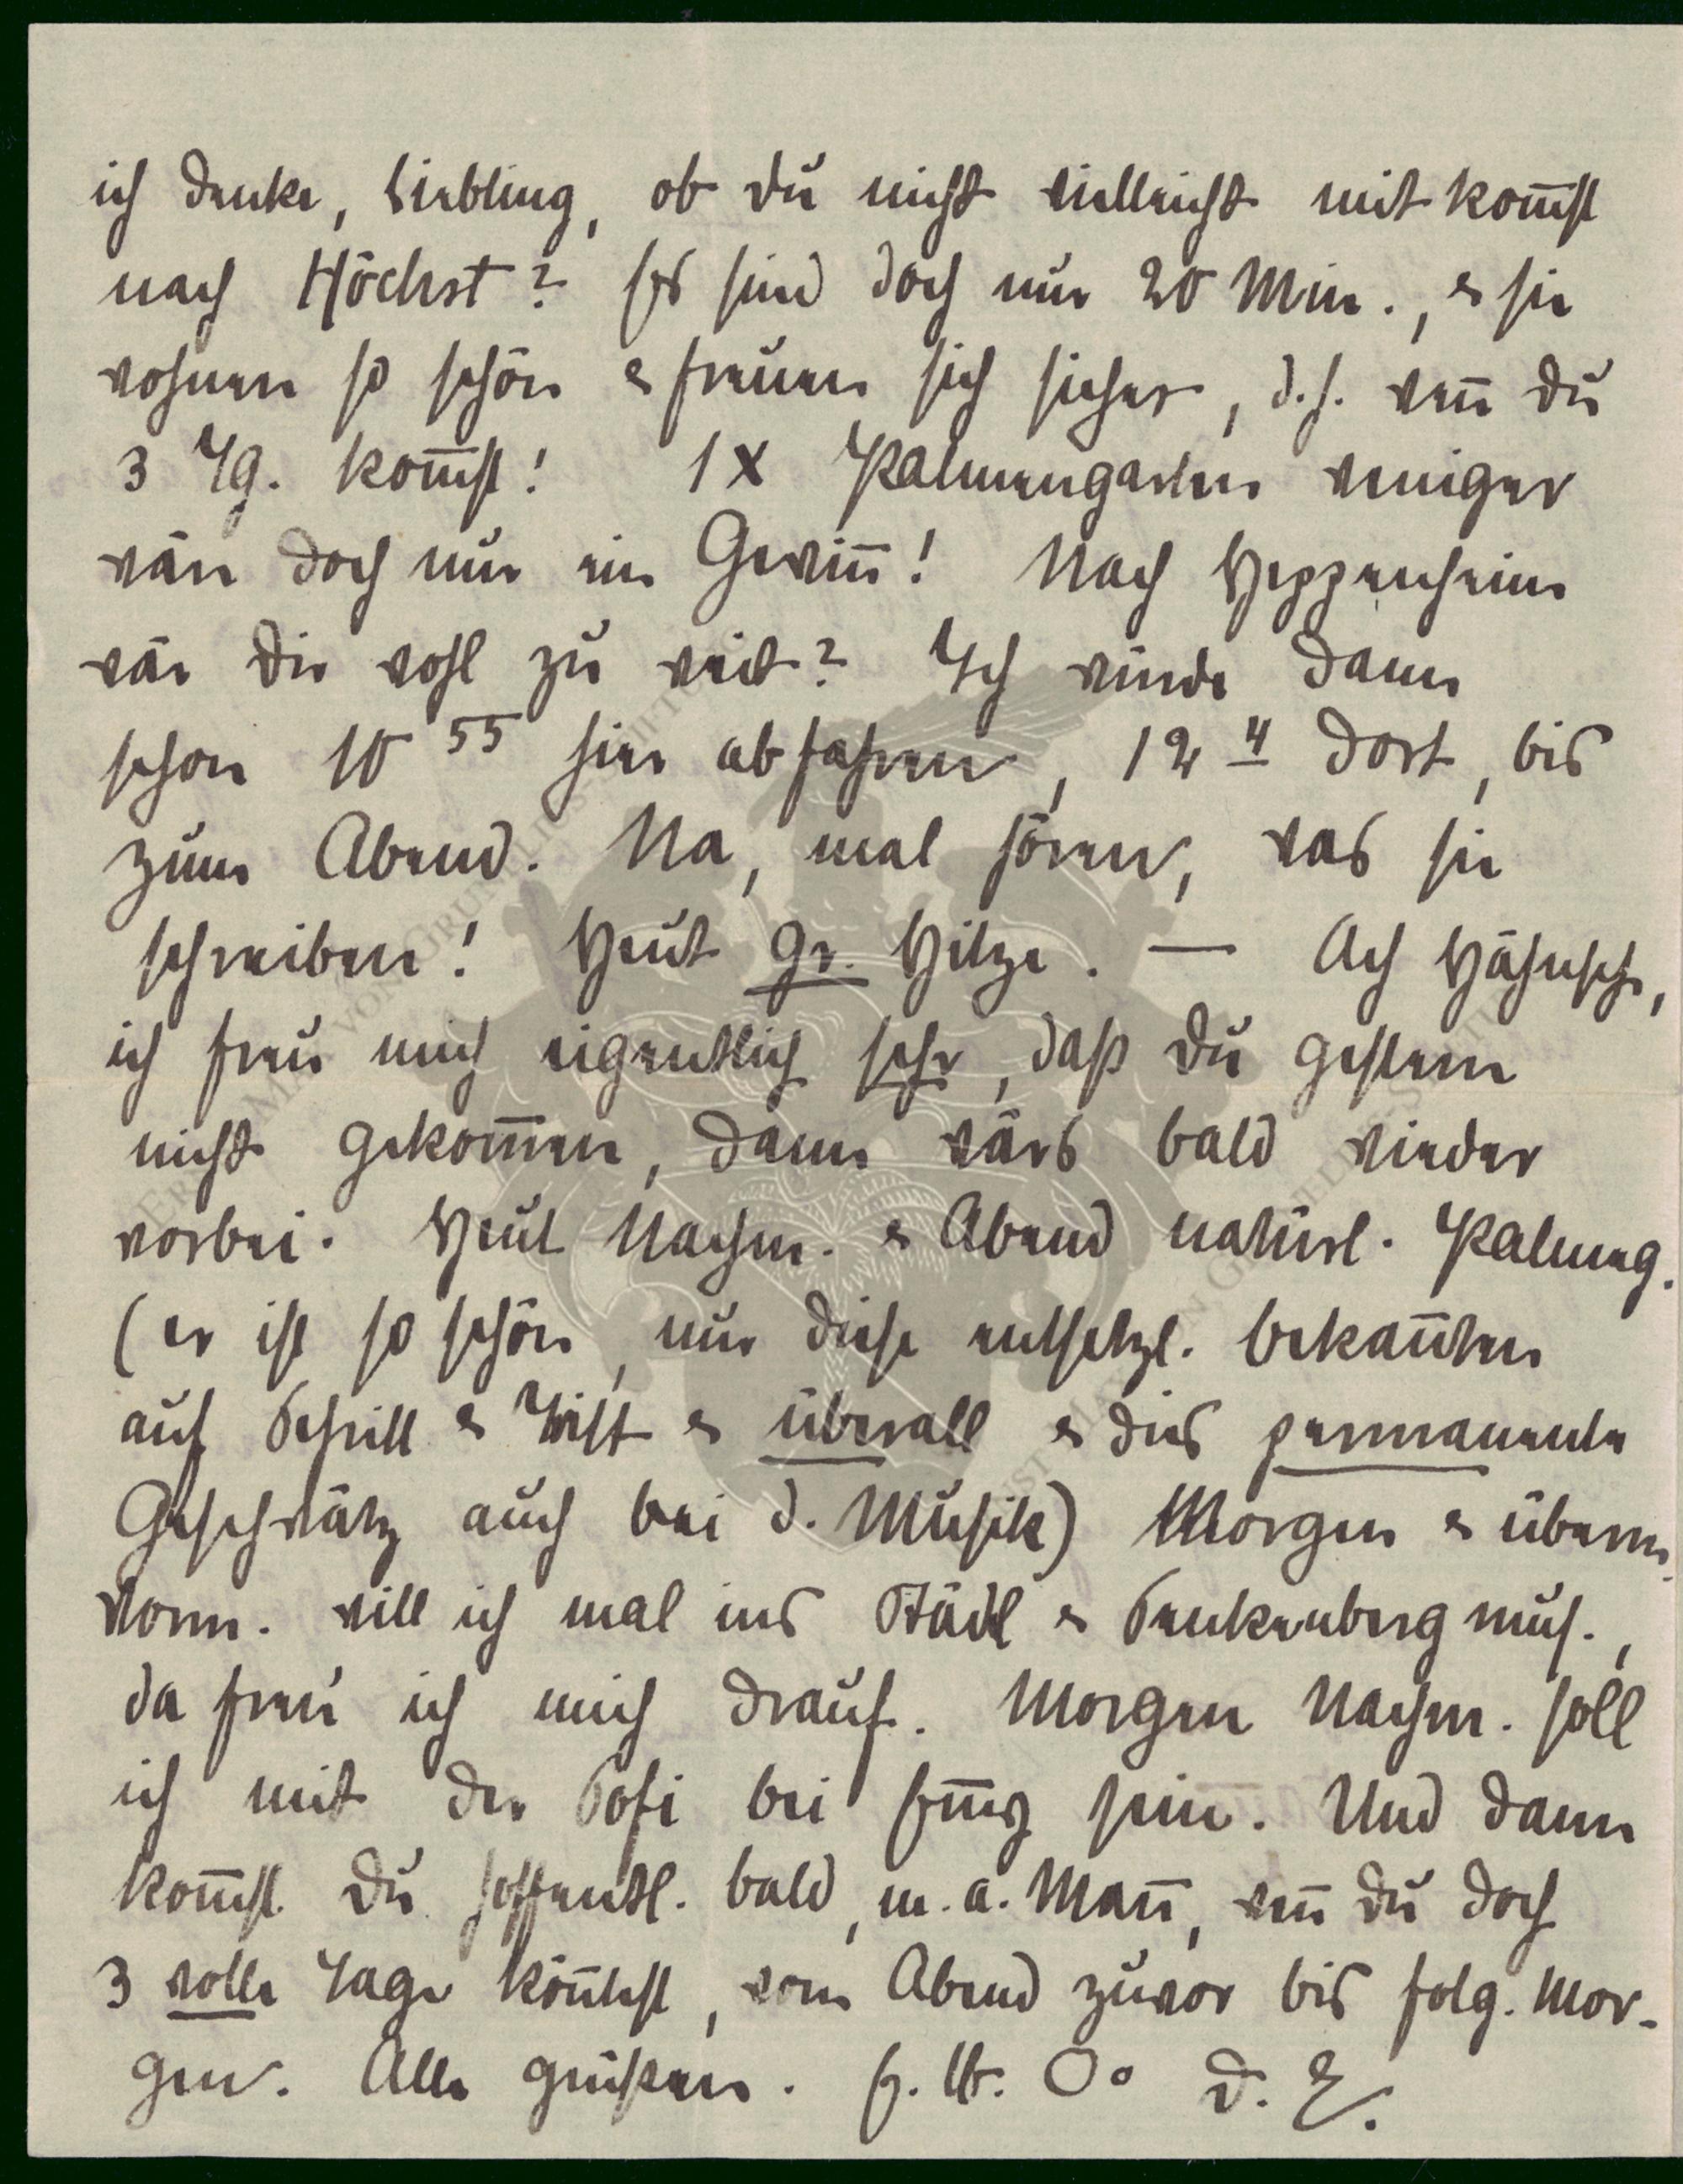 ich denke, Liebling, ob du nicht vielleicht mit kom̄st
nach Höchst? Es sind doch nur 20 Min., & sie
wohnen so schön & freuen sich sicher, d.h. wen̄ du
3 Tg. kom̄st! 1 x Palmengarten weniger
wär doch nur ein Gewin̄! Nach Heppenheim
wär dir wohl zu weit? Ich würde dann
schon 10 55 hier abfahren, 12 4 dort, bis
zum Abend. Na, mal hören, was sie
schreiben! Heut gr. Hitze. — Ach Hähnsche,
ich freu mich eigentlich sehr, daß du gestern
nicht gekom̄en, dann wärs bald wieder
vorbei. Heut Nachm. & Abend natürl. Palmeng.
(er ist so schön, nur diese entsetzl. Bekan̄ten
auf Schritt & Tritt & überall & dies permanente
Geschwätz auch bei d. Musik) Morgen & überm.
Vorm. will ich mal ins Städl & Senkenberg mus.,
da freu ich mich drauf. Morgen Nachm. soll
ich mit der Sofi bei sein. Und dann
kom̄st du hoffentl. bald, m. a. Man̄, wen̄ du doch
3 volle Tage kön̄test, vom Abend zuvor bis folg. Mor-
gen. Alle grüßen. H. lb. Oo D. E.